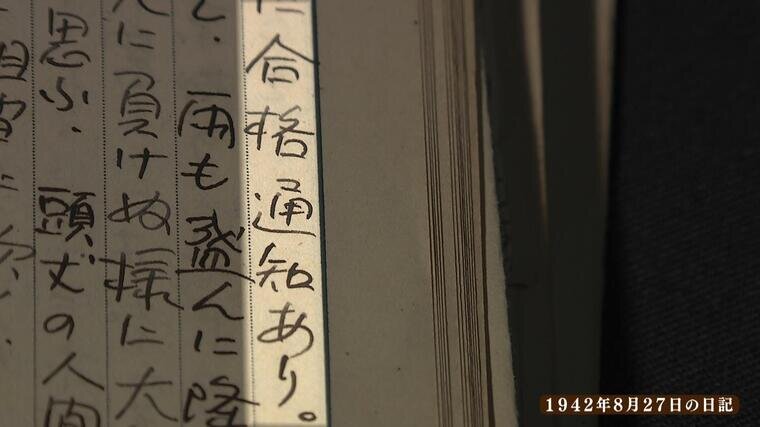 に合格通知あり。
て、雨も盛んに降
に負けぬ様に大
思ふ、頭丈の人間
1942年8月27日の日記